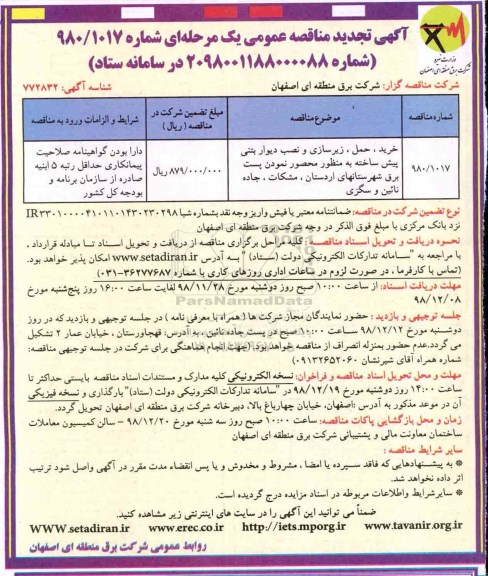 آگهی تجدید مناقصه عمومی یک مرحله‌ای شماره ۹۸۰/۱۰۱۷
(شماره ۲۰۹۸۰۰۱۱۸۸۰۰۰۰۸۸ در سامانه ستاد)
وزارت نیرو
شرکت برق منطقه ای اصفهان
شرکت مناقصه گزار: شرکت برق منطقه ای اصفهان
شناسه آگهی: ۷۷۲۸۳۲
شماره مناقصه
موضوع مناقصه
مبلغ تضمین شرکت در مناقصه ( ریال )
شرایط و الزامات ورود به مناقصه
۹۸۰/۱۰۱۷
خرید ، حمل ، زیرسازی و نصب دیوار بتنی
پیش ساخته به منظور محصور نمودن پست
برق شهرستانهای اردستان ، مشکات ، جاده
نائین و سگزی
۸۷۹/۰۰۰/۰۰۰ ریال
دارا بودن گواهینامه صلاحیت
پیمانکاری حداقل رتبه ۵ ابنیه
صادره از سازمان برنامه و
بودجه کل کشور
نوع تضمین شرکت در مناقصه: ضمانتنامه معتبر یا فیش واریز وجه نقد بشماره شبا
نزد بانک مرکزی با مبلغ فوق الذکر در وجه شرکت برق منطقه ای اصفهان
نحـوه دریافت و تحویل اسـناد مناقصـه: کلیه مراحل برگزاری مناقصه از دریافت و تحویل اسـناد تـا مبادله قرارداد ،
با مراجعه به "سـامانه تدارکات الکترونیکی دولت (ستاد) " بـه آدرس www.setadiran.ir امکان پذیر خواهد بود.
(تماس با کارفرما ، در صورت لزوم در ساعات اداری روزهای کاری با شماره ۳۶۲۷۷۶۸۷-۰۳۱)
مهلت دریافت اسـناد: از ساعت ۱۰:۰۰ صبح روز دوشنبه مورخ ۹۸/۱۱/۲۸ لغایت ساعت ۱۶:۰۰ روز پنج‌شنبه مورخ
۹۸/۱۲/۰۸
ParsNamadData
جلسه توجیهی و بازدید : حضور نمایندگان مجاز شرکت ها ( همراه با معرفی نامه ) در جلسه توجیهی و بازدید که در روز
دوشـنبه مورخ ۹۸/۱۲/۱۲ سـاعت ۱۰:۰۰ صبح در پست جاده نائین ، به آدرس: قهجاورستان ، خیابان عمار ۲ تشکیل
می گردد.عدم حضور بمنزله انصراف از مناقصه خواهد بود. (جهت انجام هماهنگی برای شرکت در جلسه توجیهی مناقصه:
شماره همراه آقای شیرنشان ۰۹۱۳۲۶۵۲۰۶۰)
مهلت و محل تحویل اسناد مناقصه و فراخوان: نسخه الکترونیکی کلیه مدارک و مستندات اسناد مناقصه بایستی حداکثر تا
ساعت ۱۴:۰۰ روز دوشنبه مورخ ۹۸/۱۲/۱۹ در "سامانه تدارکات الکترونیکی دولت (ستاد)" بارگذاری و نسخه فیزیکی
آن در موعد مذکور به آدرس :اصفهان، خیابان چهارباغ بالا، دبیرخانه شرکت برق منطقه ای اصفهان تحویل گردد.
زمان و محل بازگشایی پاکات مناقصه: ساعت ۱۰:۰۰ صبح روز سه شنبه مورخ ۹۸/۱۲/۲۰ – سالن کمیسیون معاملات
ساختمان معاونت مالی و پشتیبانی شرکت برق منطقه ای اصفهان
سایر شرایط مناقصه :
* به پیشـنهادهایی که فاقد سـپرده یا امضا ، مشروط و مخدوش و یا پس انقضاء مدت مقرر در آگهی واصل شود ترتیب
اثر داده نخواهد شد.
* سایرشرایط واطلاعات مربوطه در اسناد مزایده درج گردیده است.
ضمناً می توانید این آگهی را در سایت های اینترنتی زیر مشاهده کنید.
WWW.setadiran.ir www.erec.co.ir http://iets.mporg.ir www.tavanir.org.ir
روابط عمومی شرکت برق منطقه ای اصفهان